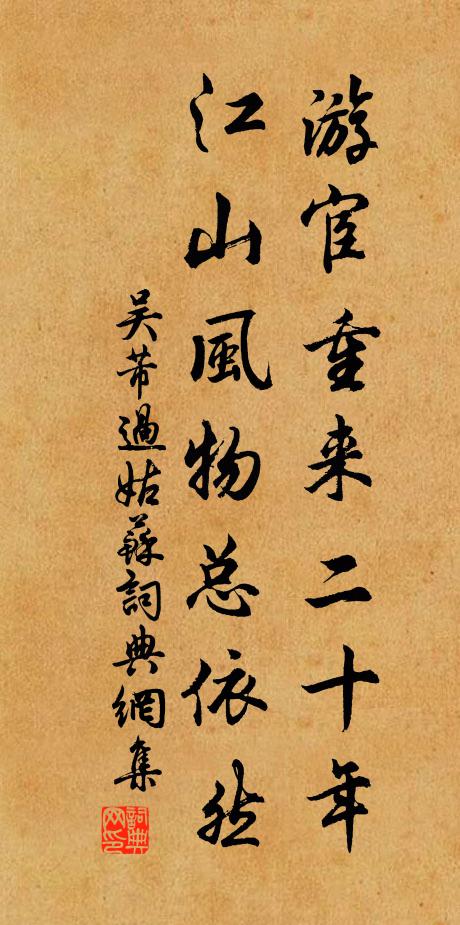 游宦重来二十年
江山風物总依然
吴芾過姑蘇詞典網集
詞典网印